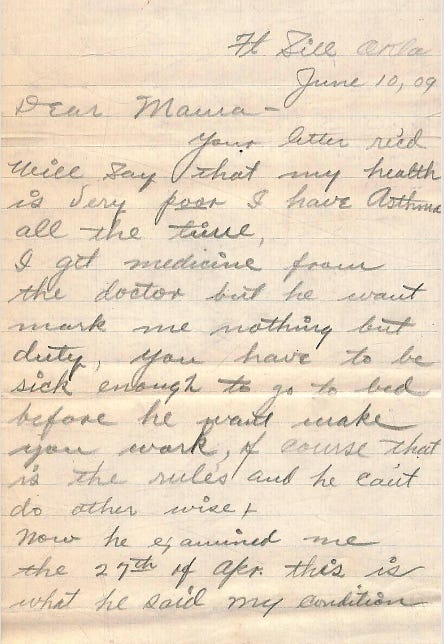 Ft Sill Okla
June 10, 09
Dear Mama -
Your letter rec'd
Will Say that my health
is very poor I have Asthma
all the time,
I get medicine from
the doctor but he want
mark me nothing but
duty, you have to be
sick enough to go to bed
before he want make
you work, of course that
is the rules and he can't
do other wise +
Now he examined me
the 27th of Apr. this is
what he said my condition